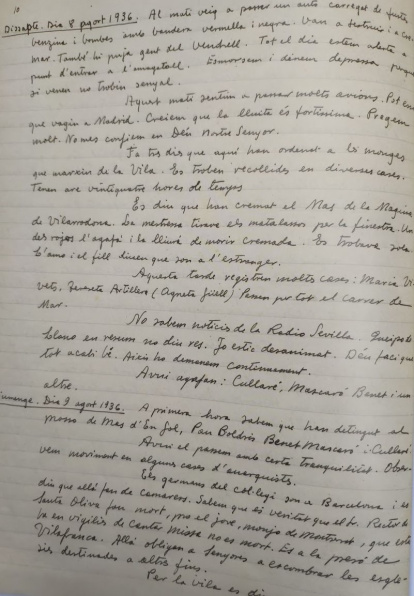 10
Dissapte. Dia 8 agost 1936. Al matí veig a passar un auto carregat de fusta,
benzina i bombes amb bandera vermella i negra. Van a
mar. També hi puja gent del Vendrell. Tot el dia estem alerta a
punt d'entrar a l'amagatall. Esmorzem i dinem depressa perquè
si venen no trobin senyal.
Aquest matí sentim a passar molts avions. Pot ser
que vagin a Madrid. Creiem que la lluita és fortíssima. Preguem
molt. Només confiem en Déu Nostre Senyor.
Fa tres dies que aquí han ordenat a les monges
que marxin de la Vila. Es troben recollides en diverses cases.
Tenen ara vintiquatre hores de temps
Es diu que han cremat el Mas de la Magina
de Vilarrodona. La mestressa tirava els matalassos per la finestra. Un
dels rojos l'agafà i la lliurà de morir cremada. Es trobava sola.
L'amo i el fill diuen que son a l'estranger.
Aquesta tarda registren moltes cases: Maria Vi-
vets, Artillers (Agneta Güell) Passen per tot el carrer de
Mar.
No sabem notícis de la Radio Sevilla. Queipo de
Llano en resum no diu res. Jo estic desanimat. Déu faci que
tot acabi bé. Així ho demanem contínuament.
Avui agafan: Cullaré, Mascaró Benet i un
altre.
Diumenge. Dia 9 agost 1936. A primera hora sabem que han detingut al
mosso de Mas d'En Sol, Pau Boldrís Benet Mascaró i Cullaré
Avui el passem amb certa tranquilitat. Obser-
vem moviment en algunes cases d'anarquistes.
Els germans del col·legi son a Barcelona i es
diu que allà fan de camarers. Sabem que és veritat que el Sr. Rector de
Santa Oliva fou mort, pro el jove, monjo de Montserrat, que esta-
va en vigílis de cantar Missa no és mort. Es a la presó de
Vilafranca. Allà obliguen a senyores a escombrar les esglé-
sies destinades a altres fins.
Per la vila es diu